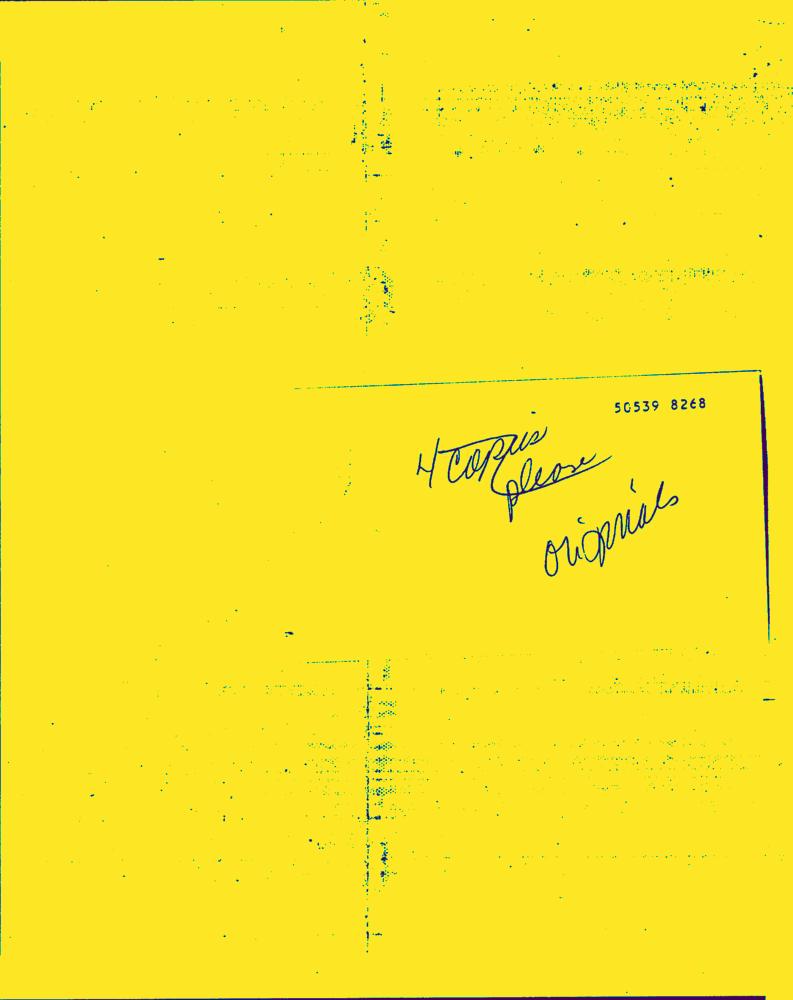 50539 8268
4 copies
please
originals